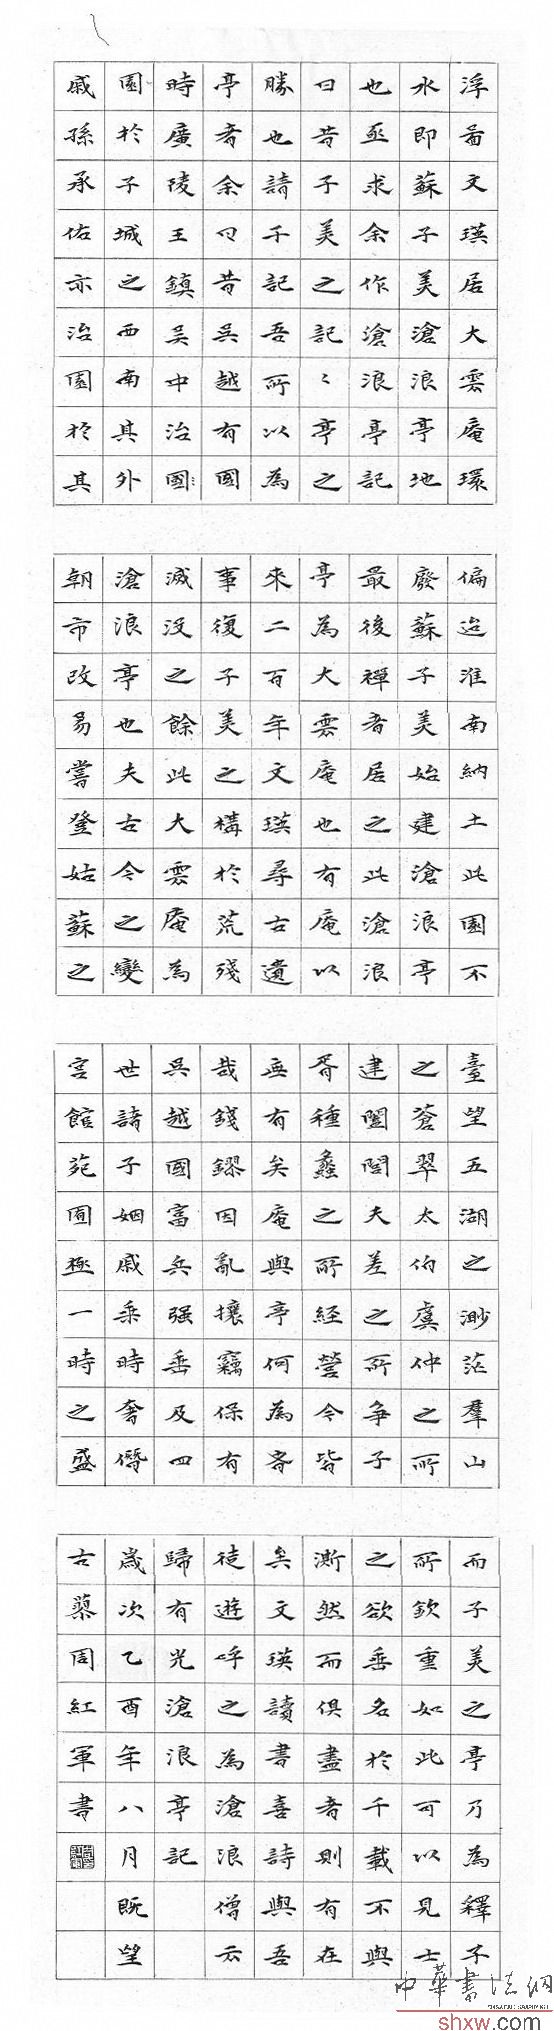 浮啚文瑛居大雲庵環
水即蘇子美滄浪亭地
也亟求余作滄浪亭記
曰昔子美之記〻亭之
勝也請子記吾所以為
亭者余曰昔吳越有國
時廣陵王鎮吳中治國
園於子城之西南其外
戚孫承佑亦治園於其
偏迨淮南納土此園不
廢蘇子美始建滄浪亭
最後禪者居之此滄浪
亭為大雲庵也有庵以
來二百年文瑛尋古遺
事復子美之構於荒殘
滅没之餘此大雲庵為
滄浪亭也夫古今之變
朝市改易嘗登姑蘇之
臺望五湖之渺茫羣山
之蒼翠太伯虞仲之所
建闔閭夫差之所争子
胥種蠡之所經營今皆
無有矣庵與亭何為者
哉錢鏐因亂攘竊保有
吳越國富兵强垂及四
世諸子姻戚乘時奢僭
宫館苑囿極一時之盛
而子美之亭乃為釋子
所欽重如此可以見士
之欲垂名於千載不與
澌然而俱盡者則有在
矣文瑛讀書喜詩與吾
徒遊呼之為滄浪僧云
歸有光滄浪亭記
歲次乙酉年八月既望
古蔡周紅軍書
中華書法網
shxw.com